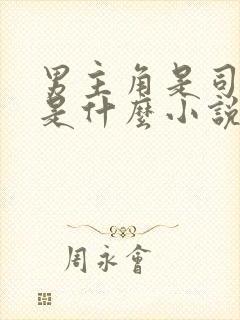 男主角是司
是什麼小說
周永會